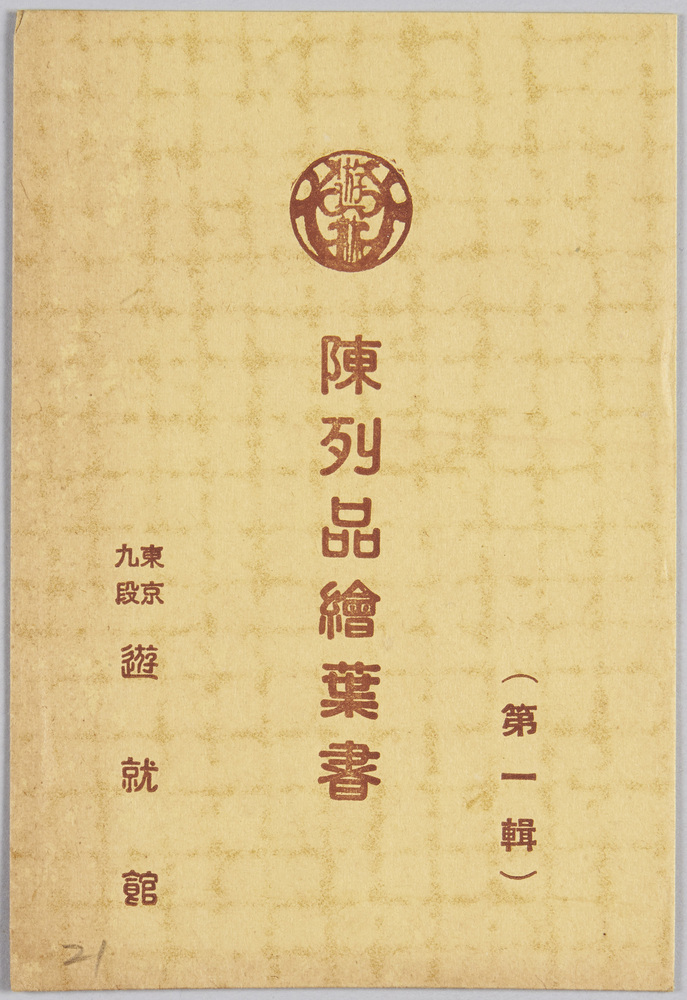 （第一輯）
陳列品繪葉書
東京
九段
遊就館
21